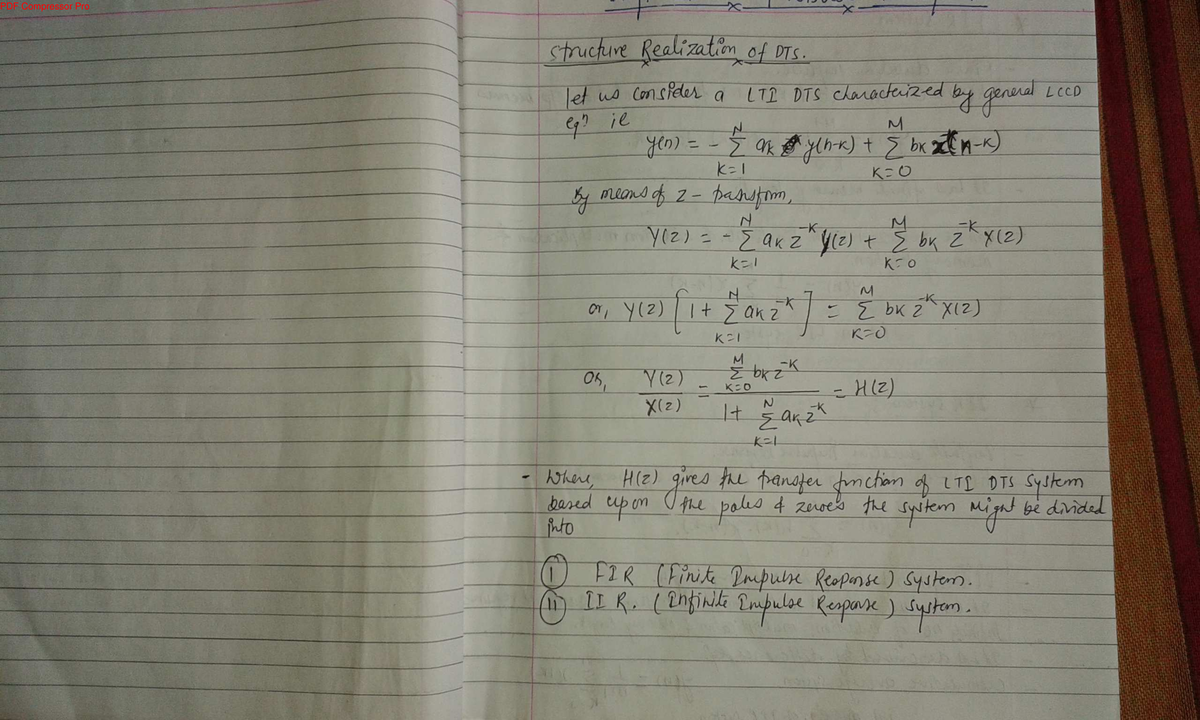 PDF Compressor Pro
Structure Realization of DTS.
let us consider a LTI DTS characterized by general LCCD
eqn ie
y(n) = - N∑k=1 ak y(n-k) + M∑k=0 bk x(n-k)
By means of z - transform,
Y(z) = - N∑k=1 ak z^-k Y(z) + M∑k=0 bk z^-k X(z)
or, Y(z) [1 + N∑k=1 ak z^-k] = M∑k=0 bk z^-k X(z)
Or, Y(z)/X(z) = M∑k=0 bk z^-k / 1+ N∑k=1 ak z^-k = H(z)
- Where, H(z) gives the transfer function of LTI DTS system
based upon the poles & zeroes the system might be divided
into
(I) FIR (Finite Impulse Response) system.
(II) IIR. (Infinite Impulse Response) system.